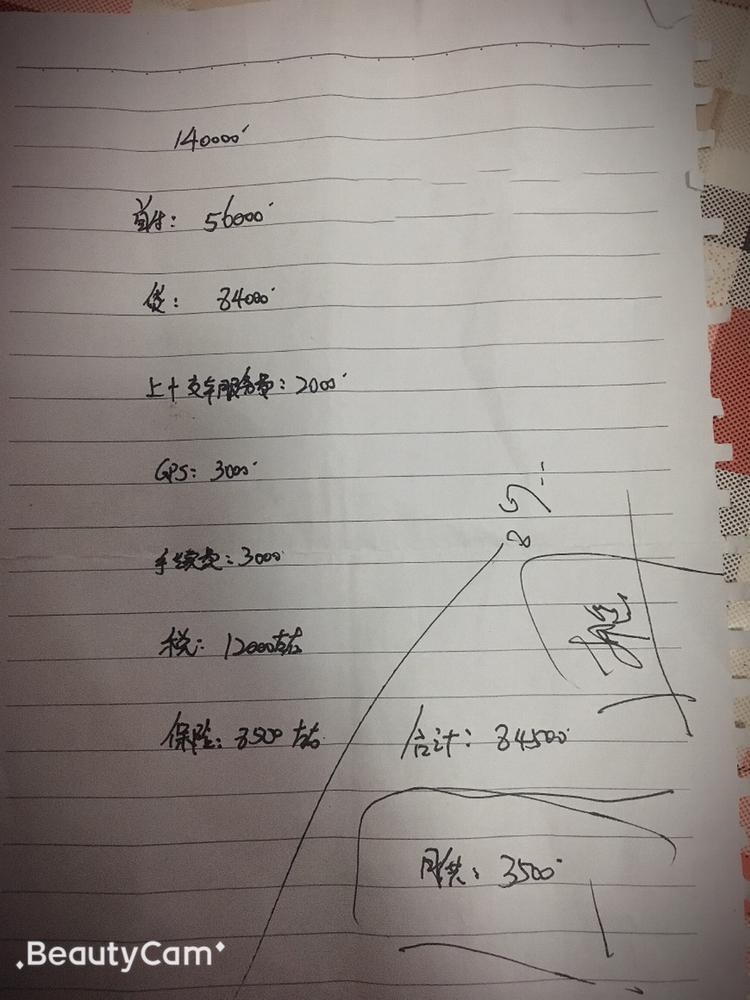 140000
首付: 56000
贷: 84000
上+交车服务费: 2000
GPS: 3000
手续费: 3000
税: 12000左右
保险: 8500左右
合计: 84500
月供: 3500
BeautyCam